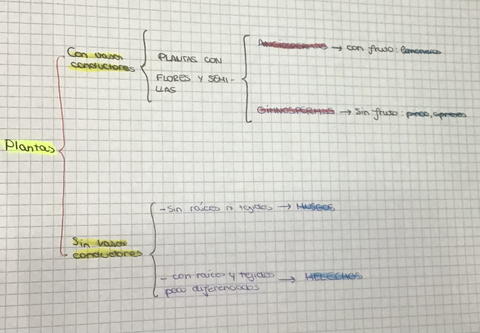 Con vasos
conductores
PLANTAS CON
FLORES Y SEMI-
LLAS
ANGIOSPERMAS → con fruto:
GIMNOSPERMAS → Sin fruto: pinos, cipreses
Plantas
Sin vasos
conductores
- Sin raíces ni tejidos → MUSGOS
- con raíces y tejidos
poco diferenciados → HELECHOS